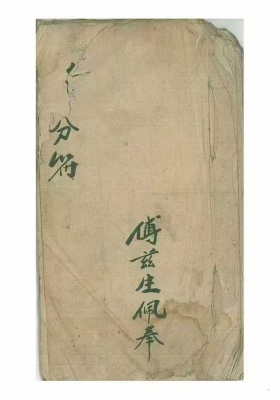 傅兹生佩奉
分符